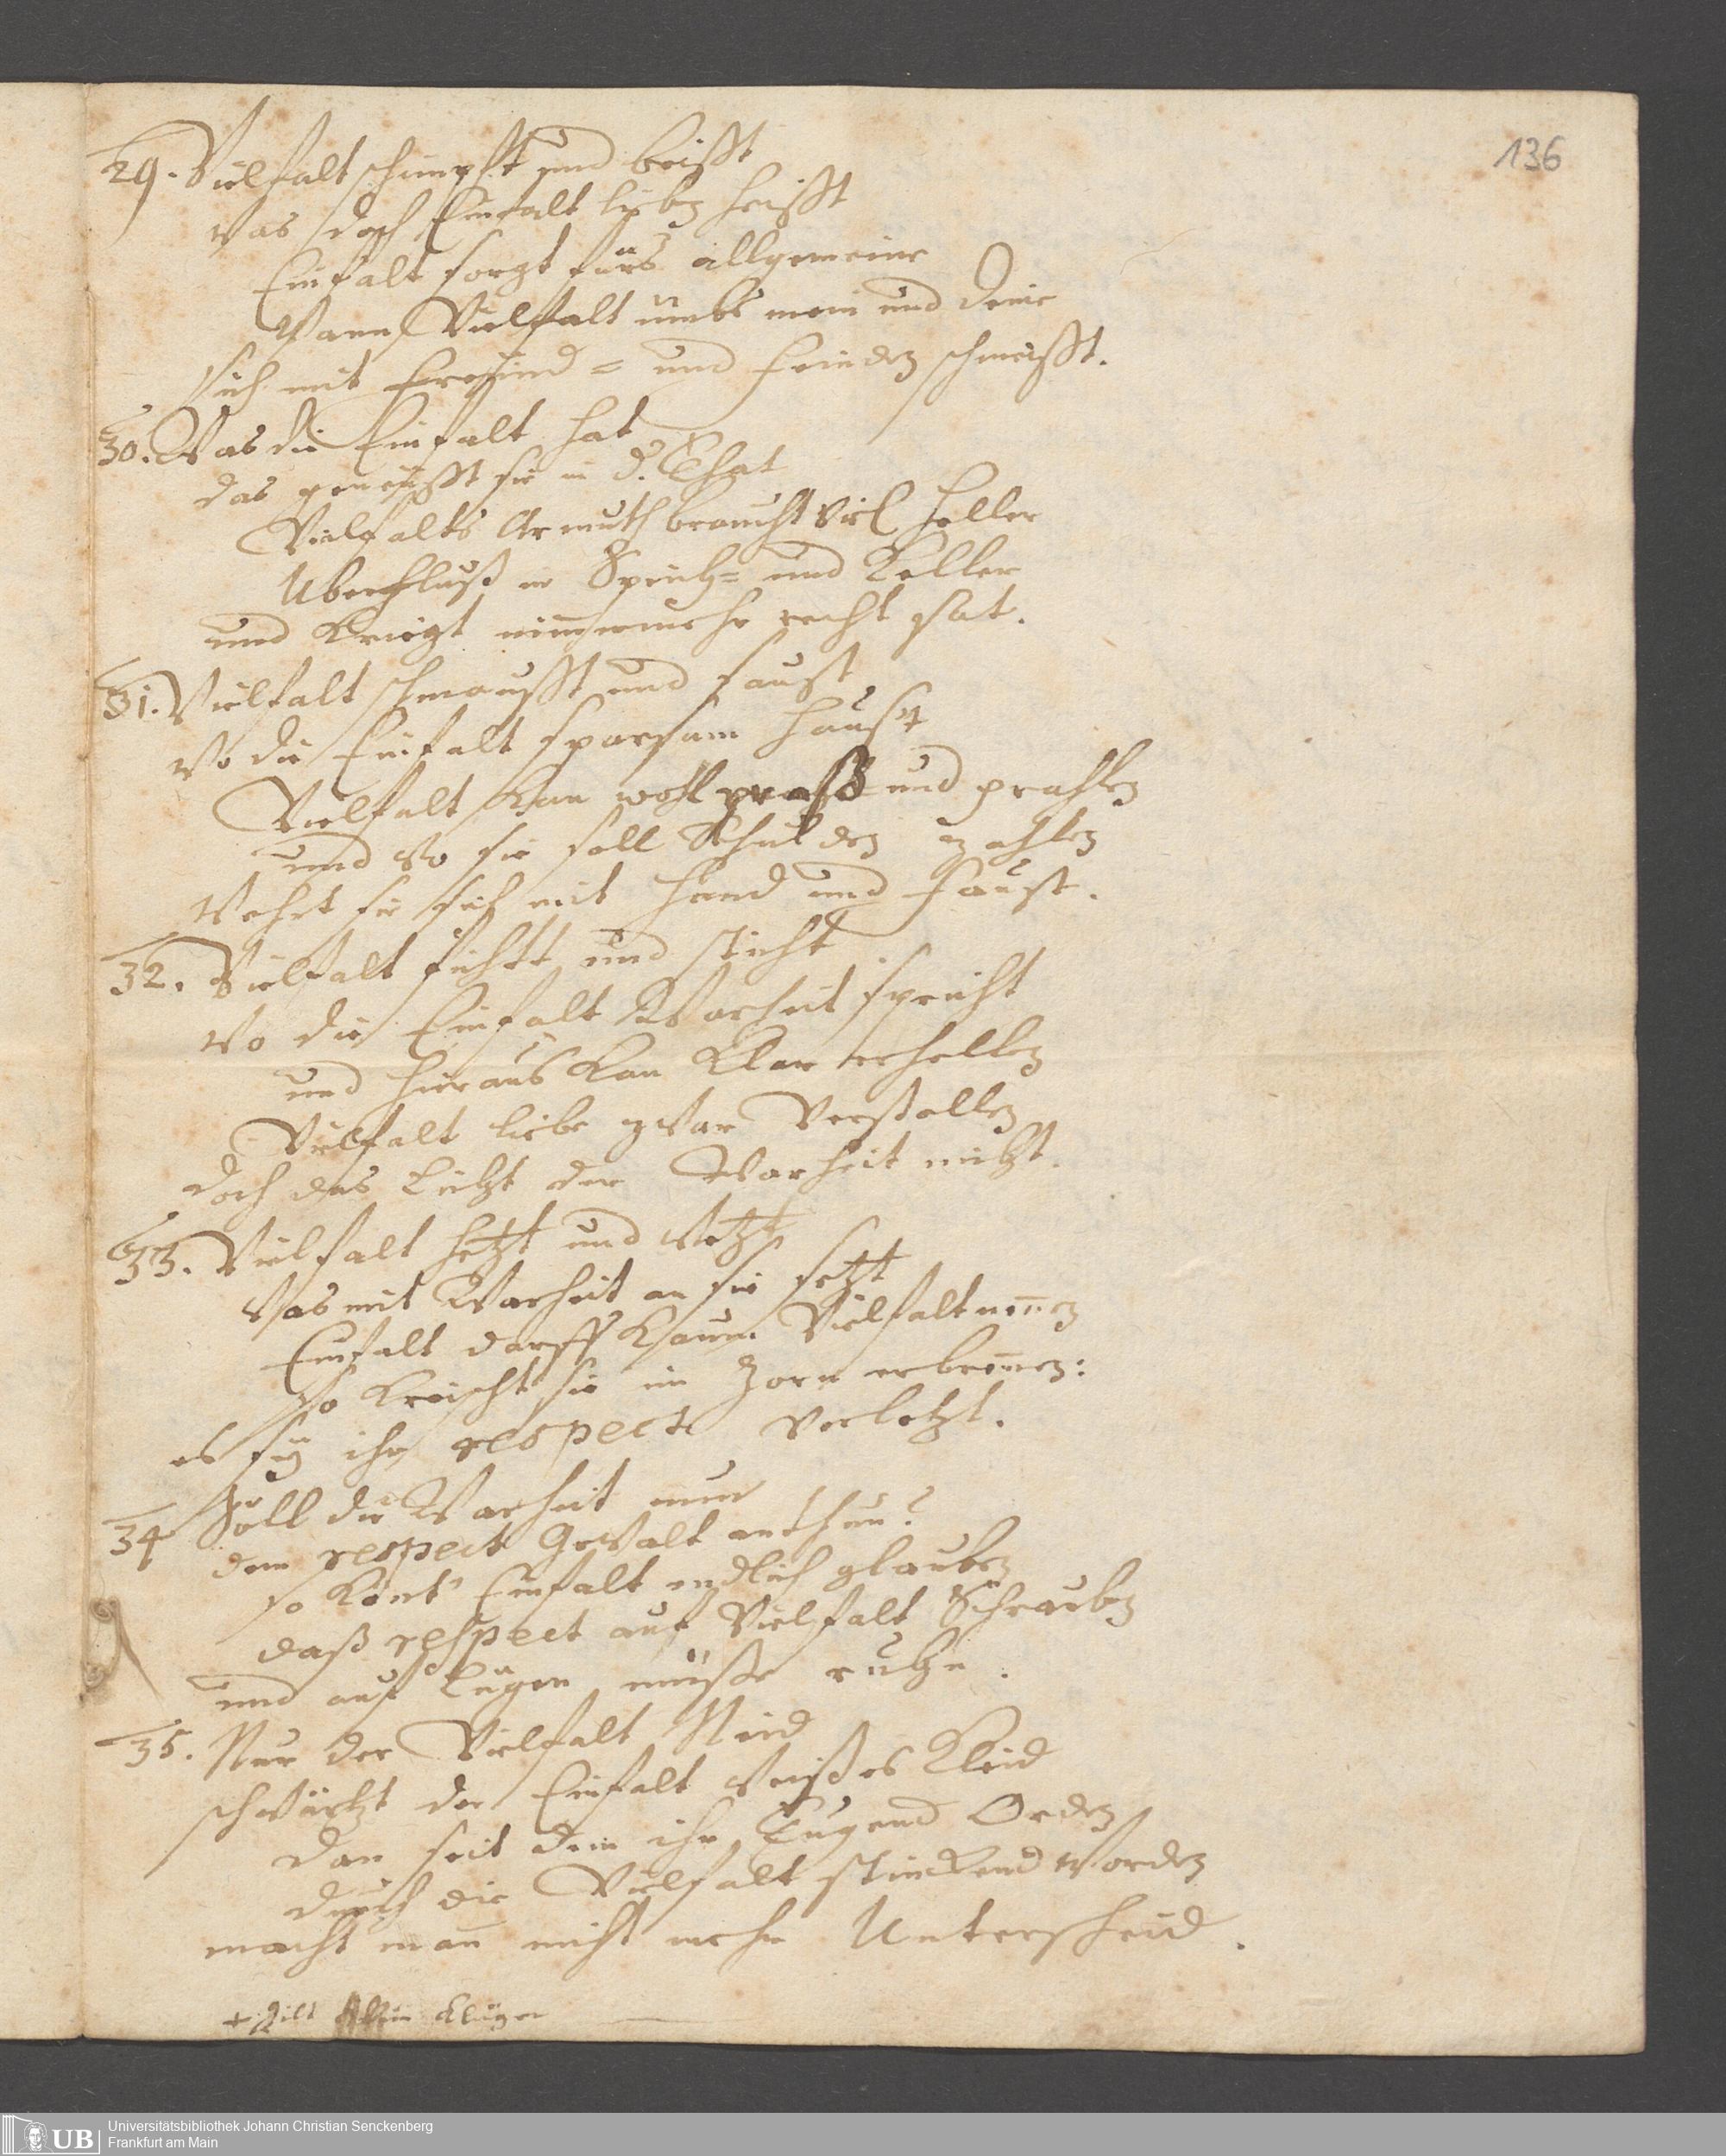 136
29. Vielfalt schimpft und beisst
was doch Einfalt lieben heisst
Einfalt sorgt fürs allgemeine
Wann Vielfalt umbs mein und deine
sich mit Freund= und Feinden schmeisst.
30. Was die Einfalt hat
das geneusst sie in d. That
Vielfalts Armuth braucht viel Heller
Uberfluß in Speich= und Keller
und kriegt nimmermehr recht sat.
31. Vielfalt schmausst und saust
wo die Einfalt sparsam haust
Vielfalt kan wohl und prahlen
und wo sie soll Schulden zahlen
Wehrt sie sich mit Hand und Faust.
32. Vielfalt ficht und sticht
wo die Einfalt Warheit spricht
und hieraus kan klar erhellen
Vielfalt liebe zwar Verstellen
doch das Licht der Warheit nicht.
33. Vielfalt hetzt und wetzt
Was mit Warheit an sie setzt
Einfalt darff kaum Vielfalt nen̄en
so kreischt sie im Zorn erbren̄en:
es sey ihr respect verletzt.
34 Soll die Warheit nun
dem respect Gewalt anthun?
so kont' Einfalt endlich glauben
daß respect auf Vielfalt Schrauben
und auf Lügen müsse ruhn.
35. Nur der Vielfalt Neid
schwärtzt der Einfalt weisses Kleid
dan seit dem ihr Tugend Orden
durch die Vielfalt stinckend worden
macht man̄ nicht mehr Unterscheid.
UB
Universitätsbibliothek Johann Christian Senckenberg
Frankfurt am Main